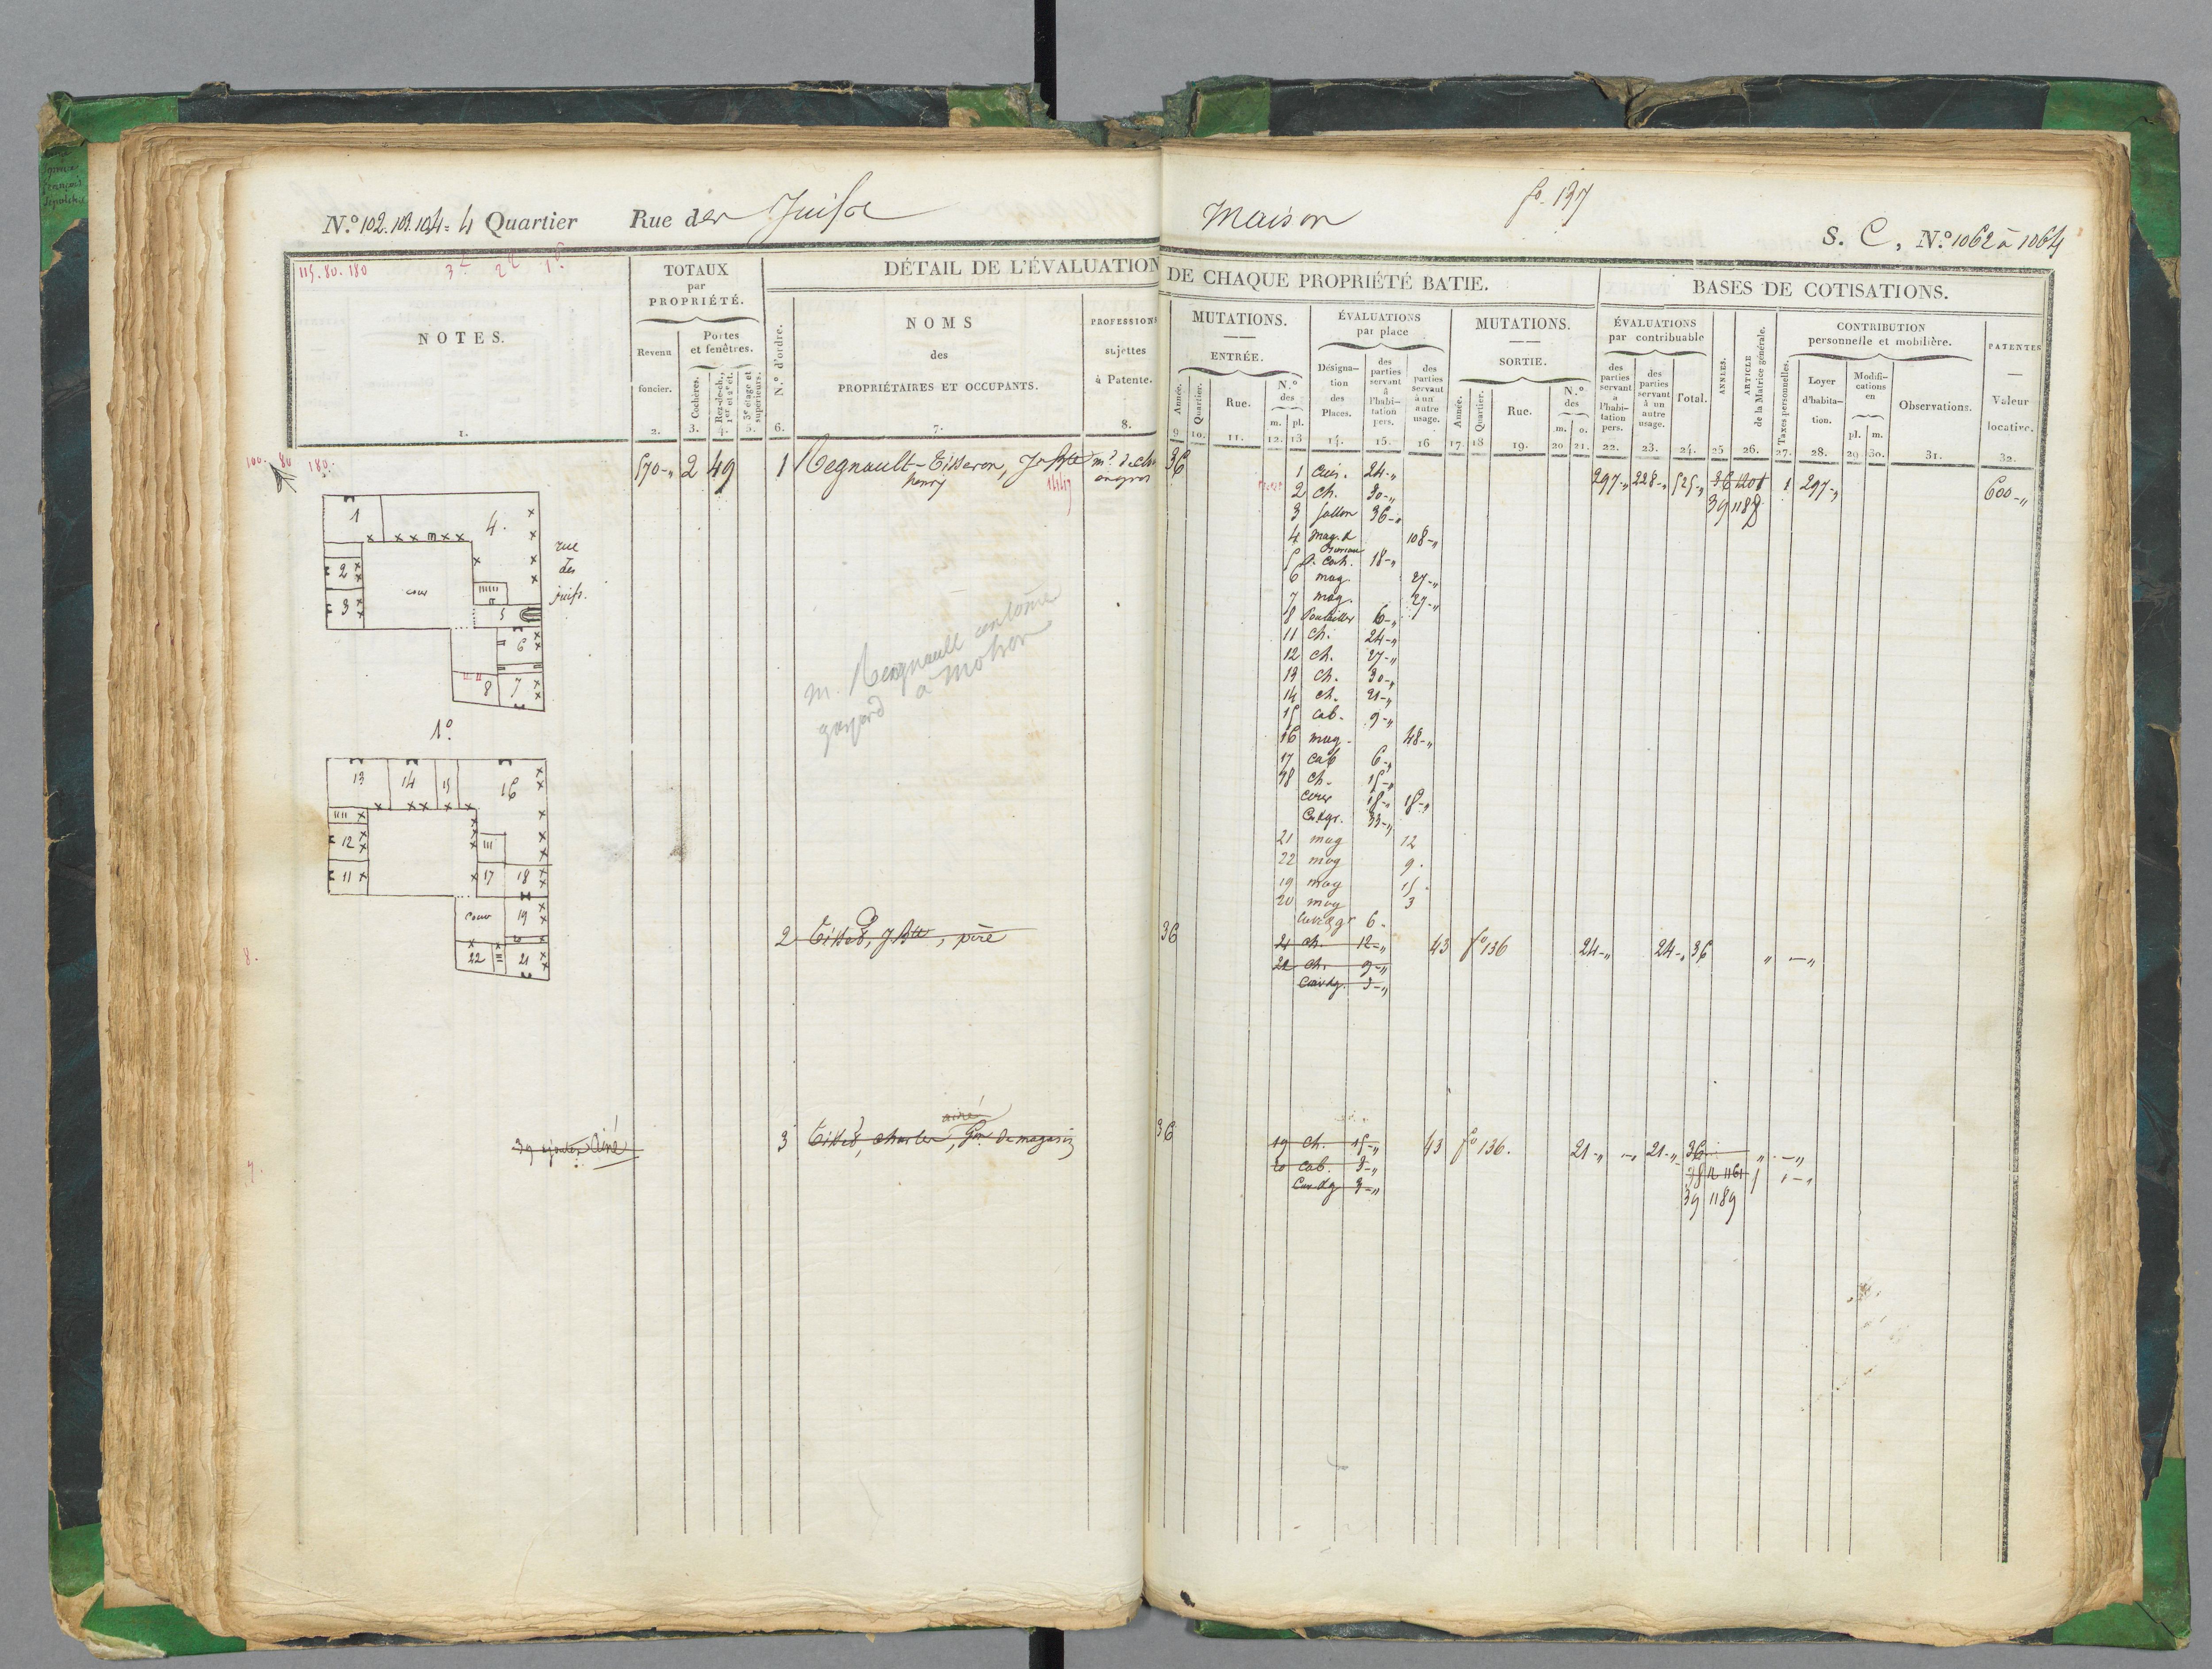 N.º 102. 103. 104. 4 Quartier Rue des Juifs
Maison
fo. 137
S. C, N.º 1062 à 1064
115. 80. 180
NOTES.
1.
TOTAUX
par
PROPRIÉTÉ.
Revenu
foncier.
2.
Portes
et fenêtres.
Cochères.
3.
Rez-de-ch.,
1er et 2e ét.
4.
3e étage et
supérieurs.
5.
DÉTAIL DE L'ÉVALUATION
N.º d'ordre.
6.
NOMS
des
PROPRIÉTAIRES ET OCCUPANTS.
7.
PROFESSIONS
sujettes
à Patente.
8.
DE CHAQUE PROPRIÉTÉ BATIE.
MUTATIONS.
ENTRÉE.
Année.
9.
Quartier.
10.
Rue.
11.
N.º
des
m. pl.
12. 13
ÉVALUATIONS
par place
Désigna-
tion
des
Places.
14.
des
parties
servant
à
l'habi-
tation
pers.
15.
des
parties
servant
à un
autre
usage.
16
MUTATIONS.
SORTIE.
Année.
17.
Quartier.
18
Rue.
19.
N.º
des
m. o.
20 21.
BASES DE COTISATIONS.
ÉVALUATIONS
par contribuable
des
parties
servant
à
l'habi-
tation
pers.
22.
des
parties
servant
à un
autre
usage.
23.
Total.
24.
ANNÉES.
25
ARTICLE
de la Matrice générale.
26.
CONTRIBUTION
personnelle et mobilière.
Taxes personnelles.
27.
Loyer
d'habita-
tion.
28.
Modifi-
cations
en
pl. m.
29 30.
Observations.
31.
PATENTES
Valeur
locative.
32.
100. 80 180.
570-„ 2 49 1 Regnault-Tisseron, Jn Bte
henry
en gros
36
1 Cuis. 24-„
2 Ch. 30-„
3 Sallon 36-„
4 Mag. &
Bureau 108-„
5 p. coch. 18-„
6 mag. 27-„
7 mag. 27-„
8 Poulailler 6-„
11 Ch. 24-„
12 Ch. 27-„
13 Ch. 30-„
14 Ch. 21-„
15 Cab. 9-„
16 mag. 48-„
17 Cab 6-„
18 Ch. 15-„
Cour 18-„ 18-„
33-„
21 mag 12
22 mag 9.
19 mag 15.
20 mag 3
6-
297-„ 228-„ 525-„ 36 1201 1 297-„ 600-„
39 1188
1
4.
2
3
cour
5
6
8 7
rue
des
juifs.
1º
13 14 15 16
12
11
17 18
cour 19
20
22 21
m. Regnault
à Mohon
8.
2 Jn Bte, père
36
21 Ch. 12-„
22 Ch. 9-„
3-„
43 fo 136 24-„ 24-„ 36 „ -„
9.
39 ajouter Ainé
3 Charles, Gon de magasin
ainé
36
19 Ch. 15-„
20 Cab. 3-„
3-„
43 fo 136. 21-„ -„ 21-„ 36 „ -„
38 1161
39 1189